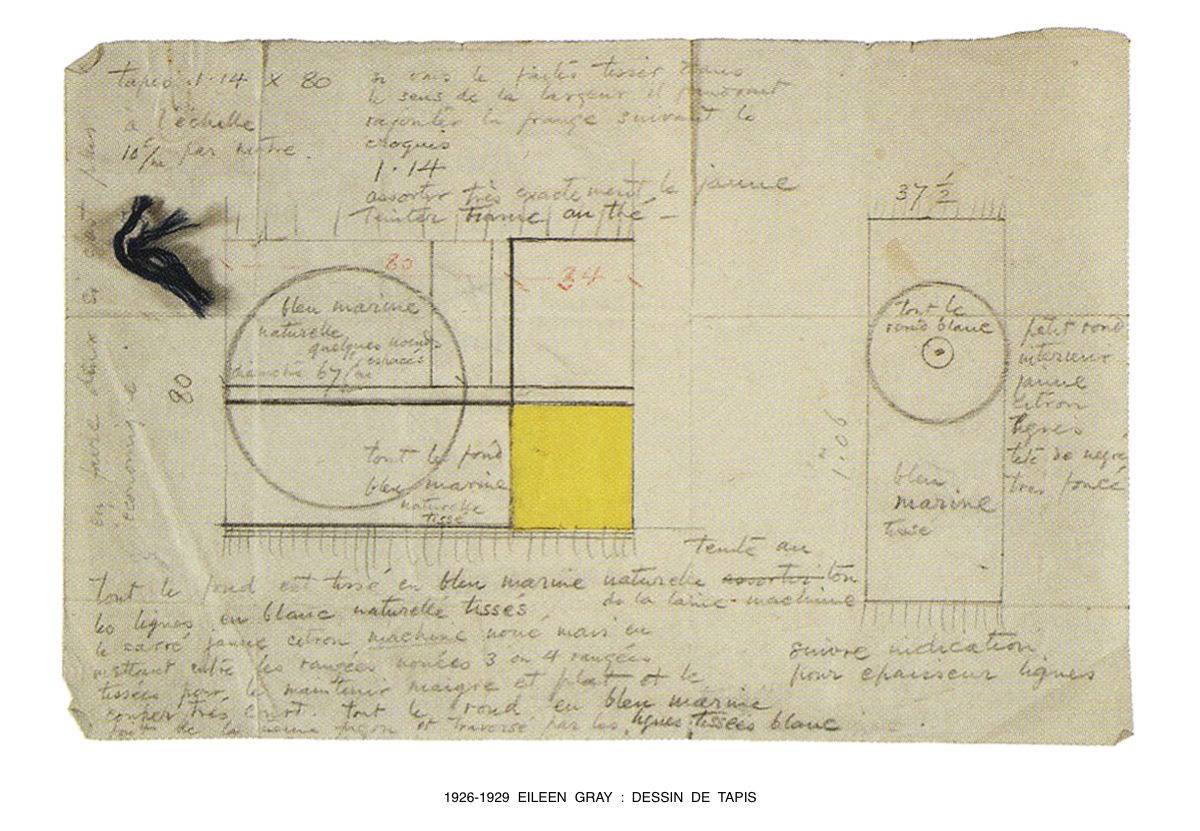 tapis 1.14 X 80
à l'échelle
10 c/m par mètre.
si vous le faites tisser dans
le sens de la largeur il faudrait
rajouter la frange suivant le
croquis
1.14
assortir très exactement le jaune
teinter trame au thé —
80
34
bleu marine
naturelle
quelques noeuds
espacés
diamètre 67 c/m
80
tout le fond
bleu marine
naturelle
tissé
en faire deux si c'est plus
économique
37 ½
tout le
rond blanc
petit rond
intérieur
jaune
citron
lignes
tête de nègre
très foncé
m
1.06
bleu
marine
tissé
teinté au
tout le fond est tissé en bleu marine naturelle assorti ton
les lignes en blanc naturelle tissés de la laine machine
le carré jaune citron machine noué mais en
mettant entre les rangées nouées 3 ou 4 rangées
tissées pour le maintenir maigre et plat et le
couper très court. tout le rond en bleu marine
fait de la même façon et traversé par les lignes tissées blanc
suivre indication
pour epaisseur lignes
1926-1929 EILEEN GRAY : DESSIN DE TAPIS